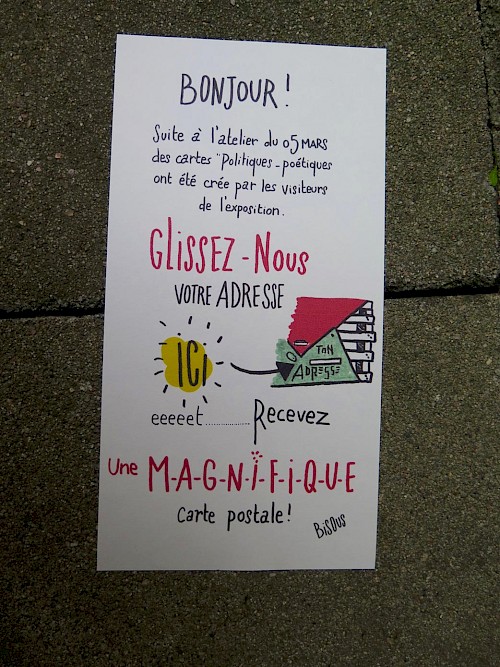 BONJOUR !
Suite à l'atelier du 05 MARS
des cartes "Politiques-poétiques
ont été crée par les visiteurs
de l'exposition.
GLISSEZ-Nous
VOTRE ADRESSE
ICI
TON
ADRESSE
eeeeet.................Recevez
Une M-A-G-N-i-F-i-Q-U-E
Carte postale !
BISOUS